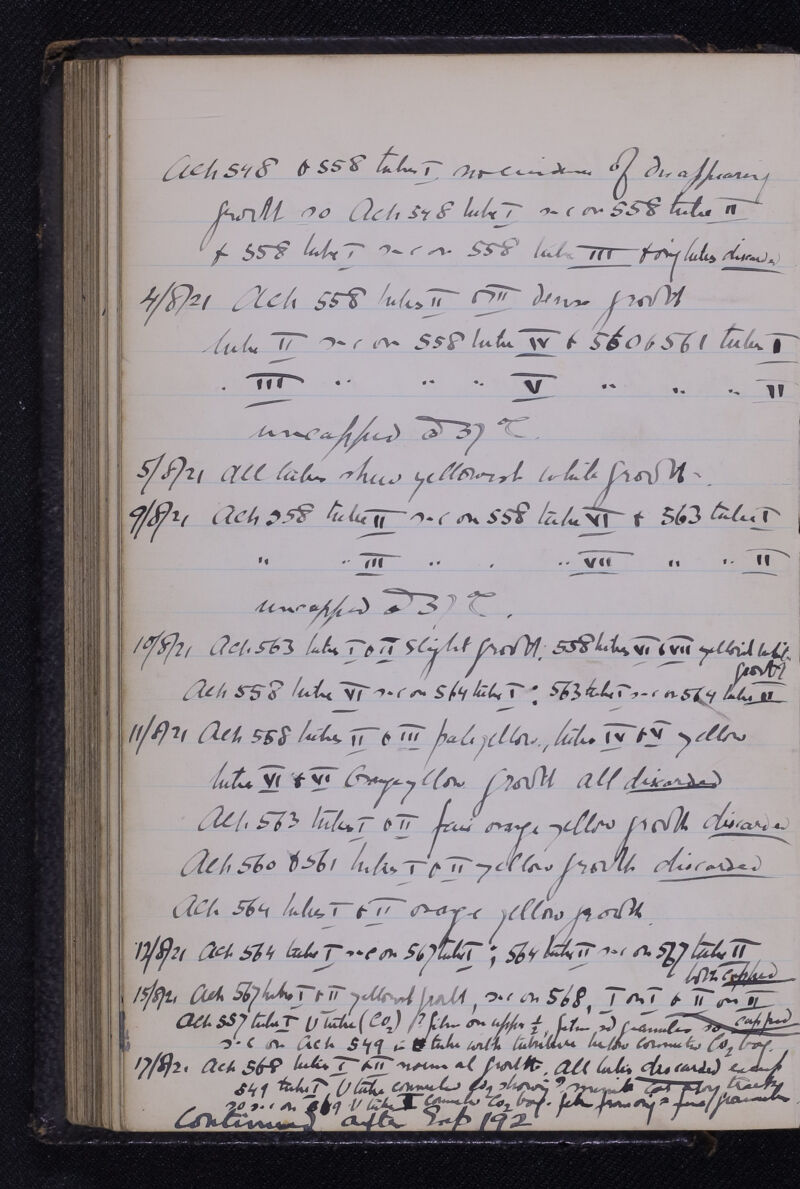 Ach 548 & 558 tubes I, no evidence of disappearing
growth so Ach 548 tube I s-c on 558 tube II
& 558 tube I s-c on 558 tube III & orig tubes discarded
4/8/21 Ach 558 tubes II & III dense growth
tube II s-c on 558 tube IV & 560 & 561 tubes I
" III " " " V " " " II
uncapped @ 37 °C.
5/8/21 All tubes shew yellowish white growth.
9/8/21 Ach 558 tube II s-c on 558 tube VI & 563 tube I
" " III " " " VII " " II
uncapped @ 37 °C.
10/8/21 Ach 563 tubes I & II slight growth; 558 tubes VI & VII yellowish white
growth
Ach 558 tube VI s-c on 564 tube I; 563 tube I s-c on 564 tube II
11/8/21 Ach 558 tubes II & III pale yellow, tubes IV & V yellow
tubes VI & VI Orange yellow growth all discarded
Ach 563 tubes I & II fair orange yellow growth discarded
Ach 560 & 561 tubes I & II yellow growth discarded
Ach 564 tubes I & II orange yellow growth
12/8/21 Ach 564 tube I s-c on 567 tube I; 564 tube II s-c on 567 tube II
both capped
15/8/21 Ach 567 tubes I & II yellowish growth, s-c on 568, I on I & II on II
capped
Ach 557 tube I U tube (CO2) ? film on upper ½, granules so
s-c on Ach 549 U tube with tubulure below connected CO2 bag.
17/8/21 Ach 568 tubes I & II normal growth. All tubes discarded except
549 tube I, U tube connected CO2 showing
so s-c on 569 U tube I connected CO2 bag.
Continued after Exp 192